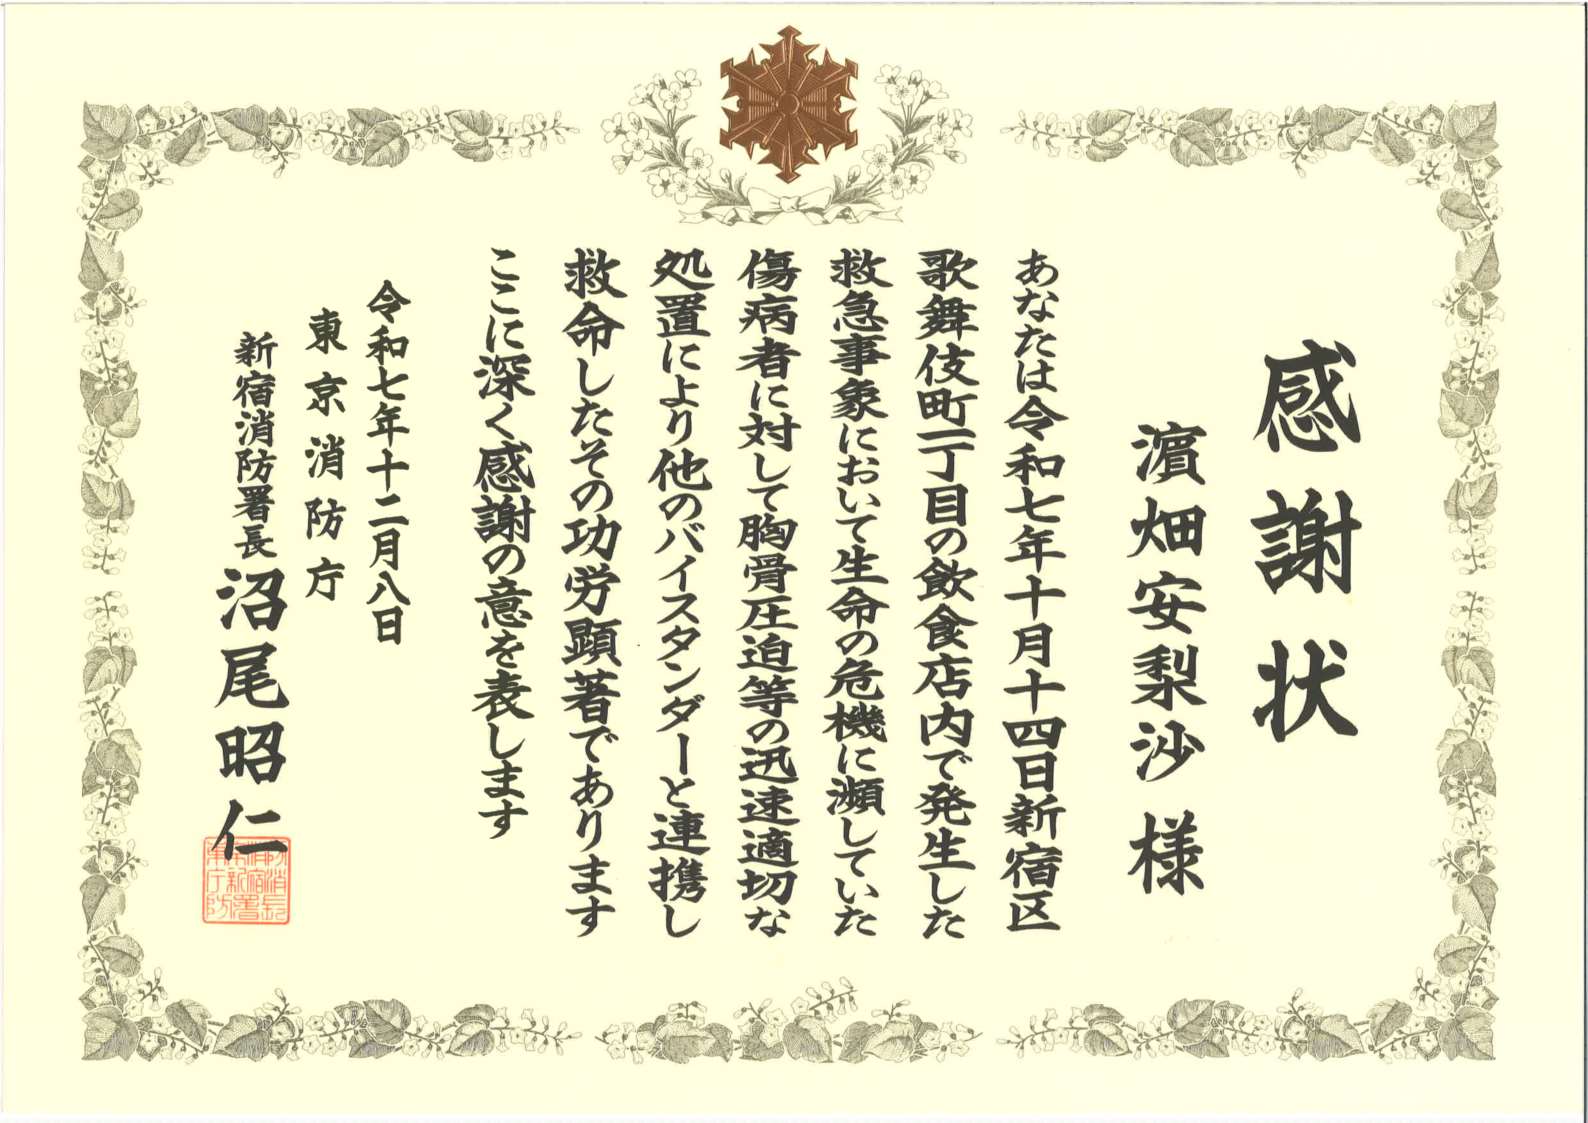 感謝状
濵畑安梨沙様
あなたは令和七年十月十四日新宿区
歌舞伎町一丁目の飲食店内で発生した
救急事象において生命の危機に瀕していた
傷病者に対して胸骨圧迫等の迅速適切な
処置により他のバイスタンダーと連携し
救命したその功労顕著であります
ここに深く感謝の意を表します
令和七年十二月八日
東京消防庁
新宿消防署長 沼尾昭仁